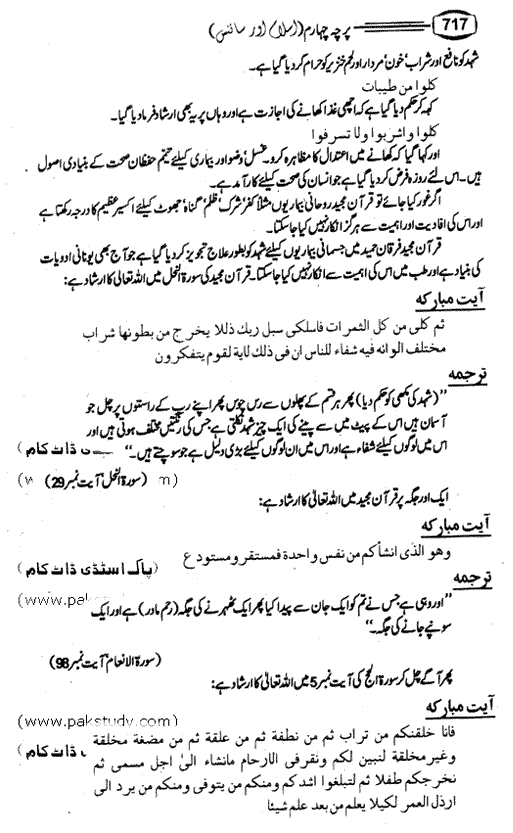 717 پرچہ چہارم (اسلام اور سائنس)
شہد کو نافع اور شراب، خون، مردار اور لحم خنزیر کو حرام کر دیا گیا ہے۔
كلوا من طيبات
کہہ کر حکم دیا گیا ہے کہ اچھی غذا کھانے کی اجازت ہے اور وہاں پر یہ بھی ارشاد فرما دیا گیا۔
كلوا واشربوا ولا تسرفوا
اور کہا گیا کہ کھانے میں اعتدال کا مظاہرہ کرو۔ غسل، وضو اور بیماری کیلئے تیمم حفظان صحت کے بنیادی اصول
ہیں۔ اس لئے روزہ فرض کر دیا گیا ہے جو انسان کی صحت کیلئے کارآمد ہے۔
اگر غور کیا جائے تو قرآن مجید روحانی بیماریوں مثلاً کفر، شرک، ظلم، گناہ، جھوٹ کیلئے اکسیر عظیم کا درجہ رکھتا ہے
اور اس کی افادیت اور اہمیت سے ہرگز انکار نہیں کیا جا سکتا۔
قرآن مجید فرقان حمید میں جسمانی بیماریوں کیلئے شہد کو بطور علاج تجویز کر دیا گیا ہے جو آج بھی یونانی ادویات
کی بنیاد ہے اور طب میں اس کی اہمیت سے انکار نہیں کیا جا سکتا۔ قرآن مجید کی سورۃ النحل میں اللہ تعالیٰ کا ارشاد ہے:
آیت مبارکہ
ثم كلى من كل الثمرات فاسلكى سبل ربك ذللا يخرج من بطونها شراب
مختلف الوانه فيه شفاء للناس ان فى ذلك لاية لقوم يتفكرون
ترجمہ
’’(شہد کی مکھی کو حکم دیا) پھر ہر قسم کے پھلوں سے رس چوس پھر اپنے رب کے راستوں پر چل جو
آسان ہیں اس کے پیٹ میں سے پینے کی ایک چیز شہد نکلتی ہے جس کی رنگتیں مختلف ہوتی ہیں اور
اس میں لوگوں کیلئے شفاء ہے اور اس میں ان لوگوں کیلئے بڑی دلیل ہے جو سوچتے ہیں۔‘‘ ڈاٹ کام)
(سورۃ النحل، آیت نمبر 29)
ایک اور جگہ پر قرآن مجید میں اللہ تعالیٰ کا ارشاد ہے:
آیت مبارکہ
وهو الذى انشأكم من نفس واحدة فمستقر ومستودع ع
(پاک اسٹڈی ڈاٹ کام)
ترجمہ
’’اور وہی ہے جس نے تم کو ایک جان سے پیدا کیا پھر ایک ٹھہرنے کی جگہ (رحم مادر) ہے اور ایک (www.pakst
سونپے جانے کی جگہ۔‘‘
(سورۃ الانعام، آیت نمبر 98)
پھر آگے چل کر سورۃ الحج کی آیت نمبر 5 میں اللہ تعالیٰ کا ارشاد ہے:
آیت مبارکہ
(www.pakstudy.com)
فانا خلقنكم من تراب ثم من نطفة ثم من علقة ثم من مضغة مخلقة
وغير مخلقة لنبين لكم ونقر فى الارحام مانشاء الىٰ اجل مسمى ثم ڈاٹ کام)
نخرجكم طفلا ثم لتبلغوا اشدكم ومنكم من يتوفى ومنكم من يرد الى
ارذل العمر لكيلا يعلم من بعد علم شيئا